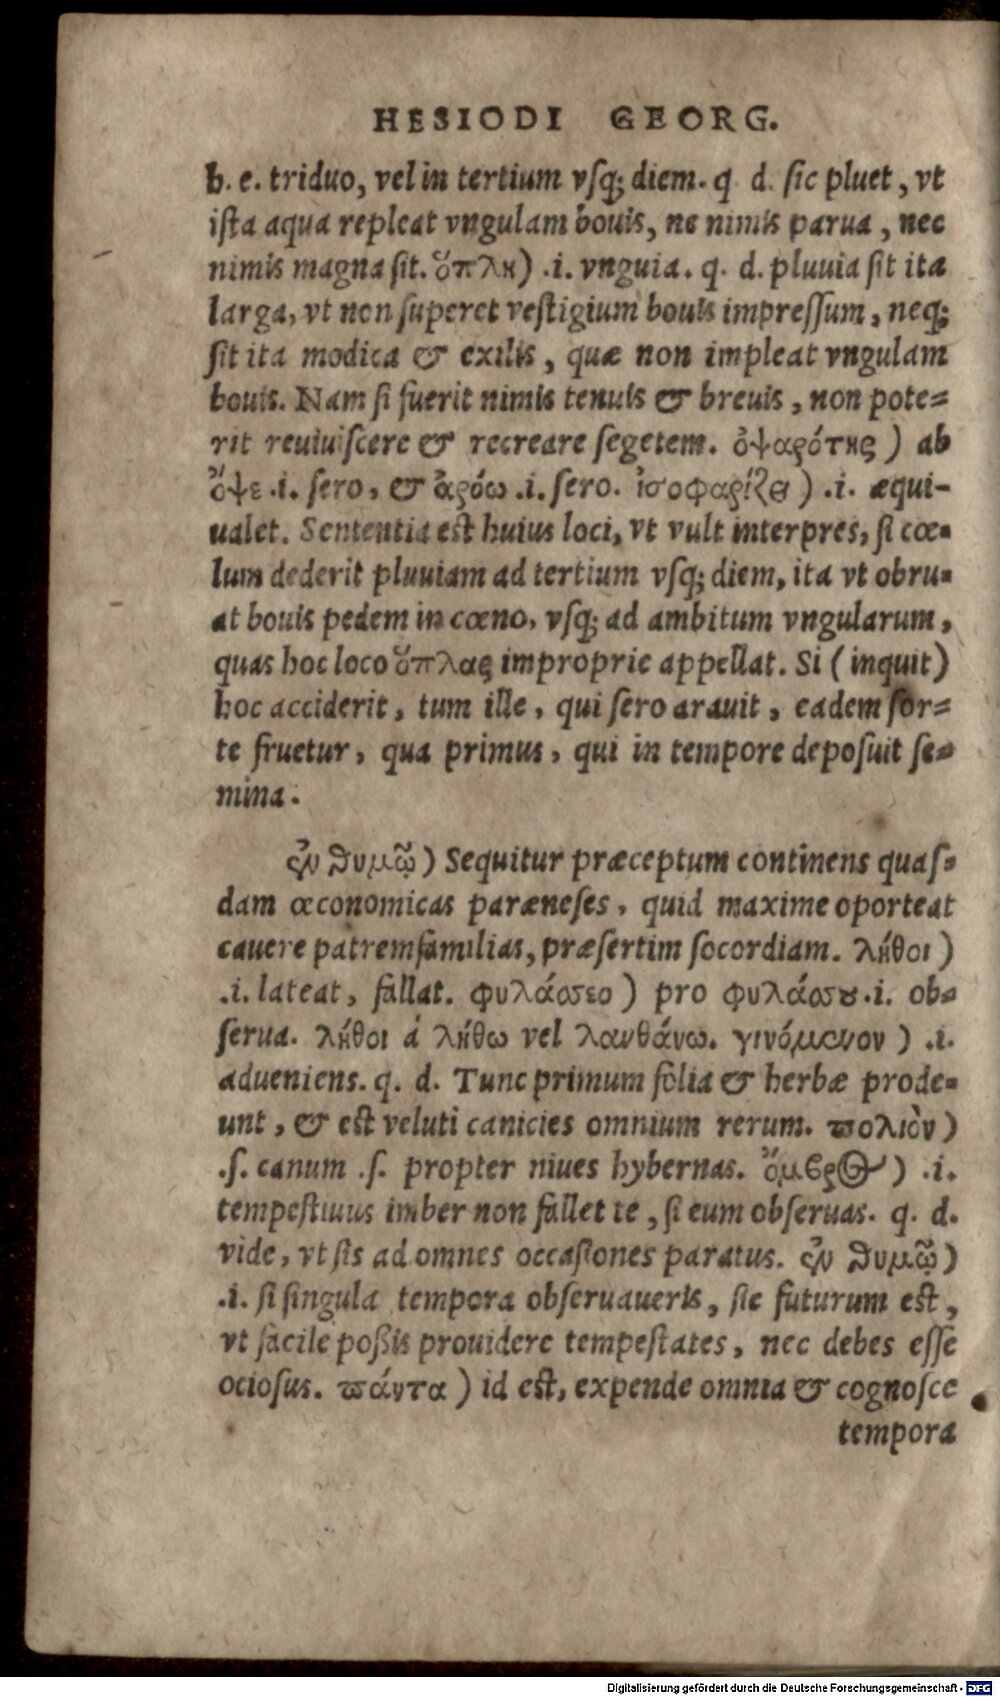 HESIODI GEORG.
h. e. triduo, vel in tertium vsq; diem. q d. sic pluet, vt
ista aqua repleat vngulam bouis, ne nimis parua, nec
nimis magna sit. ὅπλη) .i. vnguia. q. d. pluuia sit ita
larga, vt non superet vestigium bouis impressum, neq;
sit ita modica & exilis, quæ non impleat vngulam
bouis. Nam si fuerit nimis tenuis & breuis, non pote=
rit reuiuiscere & recreare segetem. ὀψαρότης) ab
ὄψε .i. sero, & ἀρόω .i. sero. ἰσοφαρίζει) .i. æqui-
ualet. Sententia est huius loci, vt vult interpres, si cœ=
lum dederit pluuiam ad tertium vsq; diem, ita vt obru=
at bouis pedem in cœno, vsq; ad ambitum vngularum,
quas hoc loco ὅπλας improprie appellat. Si (inquit)
hoc acciderit, tum ille, qui sero arauit, eadem sor=
te fruetur, qua primus, qui in tempore deposuit se=
mina.
ἐν θυμῷ) Sequitur præceptum continens quas=
dam œconomicas paræneses, quid maxime oporteat
cauere patremfamilias, præsertim socordiam. λήθοι)
.i. lateat, fallat. φυλάσσεο) pro φυλάσου .i. ob=
serua. λήθοι á λήθω vel λανθάνω. γινόμενον) .i.
adueniens. q. d. Tunc primum folia & herbæ prode=
unt, & est veluti canicies omnium rerum. πολιὸν)
.s. canum .s. propter niues hybernas. ὄμβρος) .i.
tempestiuus imber non fallet te, si eum obseruas. q. d.
vide, vt sis ad omnes occasiones paratus. ἐν θυμῷ)
.i. si singula tempora obseruaueris, sic futurum est,
vt facile poßis prouidere tempestates, nec debes esse
ociosus. πάντα) id est, expende omnia & cognosce
tempora
Digitalisierung gefördert durch die Deutsche Forschungsgemeinschaft - DFG